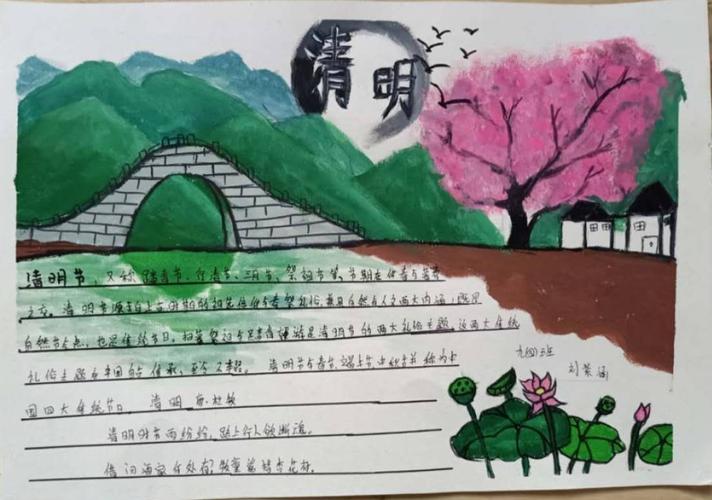 清明
清明节，又称踏青节、行清节、三月节、祭祖节等，节期在仲春与暮春
之交。清明节源自上古时期的祖先信仰与春祭礼俗，兼具自然与人文两大内涵，既是
自然节气点，也是传统节日，扫墓祭祖与踏青郊游是清明节的两大礼俗主题，这两大传统
礼俗主题在中国自古传承，至今不辍。清明节与春节、端午节、中秋节并称为中
国四大传统节日。清明 唐.杜牧
清明时节雨纷纷，路上行人欲断魂。
借问酒家何处有？牧童遥指杏花村。
九(四)班
刘
涵